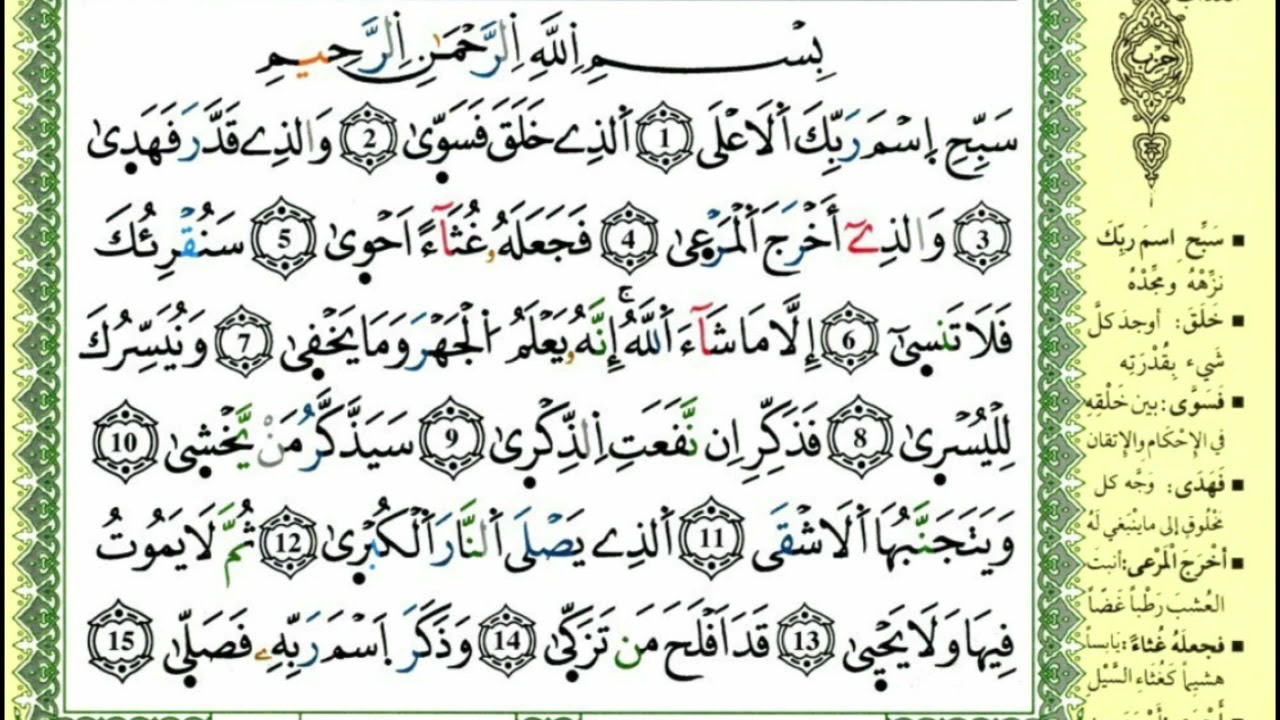 بِسْمِ اِللَّهِ اِلرَّحْمَٰنِ اِلرَّحِيمِ
سَبِّحِ اِسْمَ رَبِّكَ اَلَاعْلَى 1 اَلذِے خَلَقَ فَسَوّ۪ىٰ 2 وَالذِے قَدَّرَ فَهَد۪ىٰ
3 وَالذِےٓ أَخْرَجَ اَلْمَرْع۪ىٰ 4 فَجَعَلَهُۥ غُثَآءً اَحْو۪ىٰ 5 سَنُقْرِئُكَ
فَلَا تَنس۪ىٰٓ 6 إِلَّا مَا شَآءَ اَللَّهُۚ إِنَّهُۥ يَعْلَمُ اُلْجَهْرَ وَمَا يَخْف۪ىٰ 7 وَنُيَسِّرُكَ
لِلْيُسْر۪ىٰ 8 فَذَكِّرِ اِن نَّفَعَتِ اِلذِّكْر۪ىٰ 9 سَيَذَّكَّرُ مَنْ يَّخْش۪ىٰ 10
وَيَتَجَنَّبُهَا اَلَاشْقَى 11 اَلذِے يَصْلَى اَلنَّارَ اَلْكُبْر۪ىٰ 12 ثُمَّ لَا يَمُوتُ
فِيهَا وَلَا يَحْي۪ىٰ 13 قَدَ اَفْلَحَ مَن تَزَكّ۪ىٰ 14 وَذَكَرَ اَسْمَ رَبِّهِۦ فَصَلّ۪ىٰ 15
حزب
■ سَبِّحِ اِسْمَ رَبِّكَ
نزِّهْهُ ومجِّدْهُ
■ خَلَقَ: أوجدَ كلَّ
شَيء بِقُدْرَتِه
■ فَسَوَّى: بين خَلْقِهِ
في الإِحْكام والإِتقان
■ فَهَدَى: وَجَّه كل
مَخْلُوقٍ إلى ما ينْبَغي لَهُ
■ أخْرَجَ الْمَرْعى: أنبتَ
العُشبَ رَطْباً غَضّاً
■ فجعلَهُ غُثاءً: يابساً
هشيماً كغُثاءِ السَّيْل